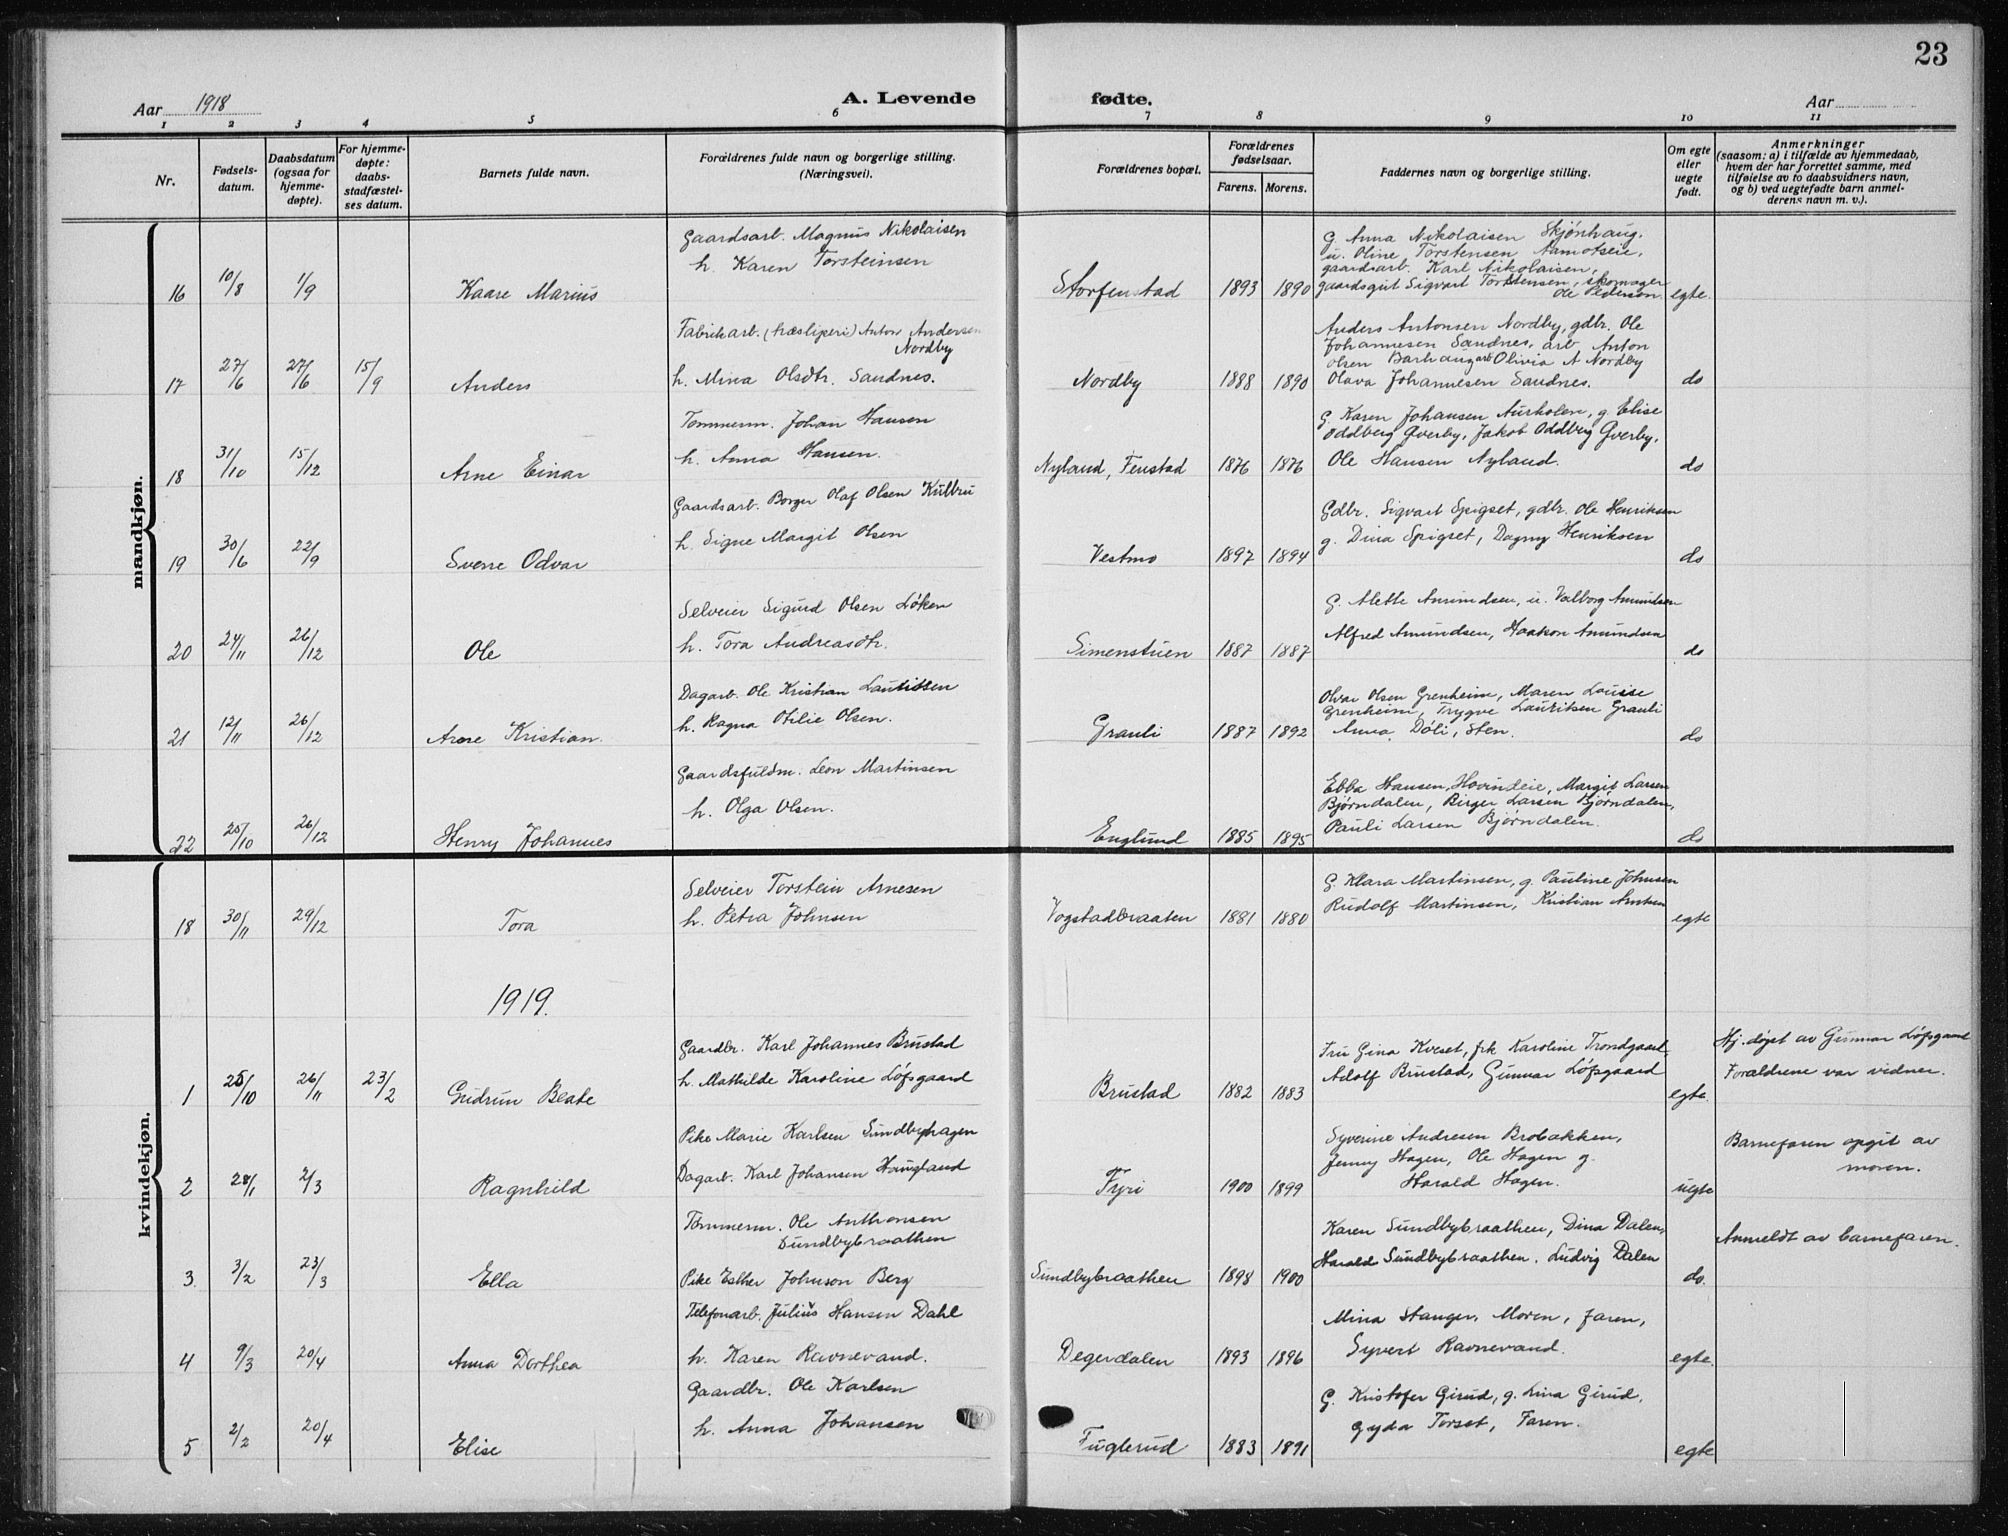 23
Aar 1918 A. Levende fødte. Aar
1 2 3 4 5 6 7 8 9 10 11
Nr.
Fødsels-
datum.
Daabsdatum
(ogsaa for
hjemme-
døpte).
For hjemme-
døpte:
daabs-
stadfæstel-
ses datum.
Barnets fulde navn.
Forældrenes fulde navn og borgerlige stilling.
(Næringsvei).
Forældrenes bopæl.
Forældrenes
fødselsaar.
Farens. Morens.
Faddernes navn og borgerlige stilling.
Om egte
eller
uegte
født.
Anmerkninger
(saasom: a) i tilfælde av hjemmedaab,
hvem der har forrettet samme, med
tilføielse av to daabsvidners navn,
og b) ved uegtefødte barn anmel-
derens navn m. v.).
mandkjøn.
16 10/8 1/9 Kaare Marius
Gaardsarb. Magnus Nikolaisen
h. Karen Torsteinsen
Storfenstad 1893 1890
G. Anna Nikolaisen Skjønhaug,
u. Oline Torstensen Aamotseie,
gaardsarb. Karl Nikolaisen,
gaardsgut Sigvart Torstensen, skomager
Ole Pederson
egte.
17 27/6 27/6 15/9 Anders
Fabrikarb. (træsliperi) Anton Andersen
Nordby
h. Mina Olsdtr. Sandnes.
Nordby 1888 1890
Anders Antonsen Nordby, gdbr. Ole
Johannesen Sandnes, arb Anton
Olsen Barhaug arb Olivia A Nordby
Olava Johannesen Sandnes.
do
18 31/10 15/12 Arne Einar
Tømmerm. Johan Hansen
h. Anna Hansen.
Nyland, Fenstad 1876 1876
G. Karen Johansen Aurholen, g. Elise
Oddberg Gverby, Jakob Oddberg Gverby,
Ole Hansen Nyland.
do
19 30/6 22/9 Sverre Odvar
Gaardsarb. Borger Olaf Olsen Kulbru
h. Signe Margit Olsen
Vestmo 1897 1894
Gdbr. Sigvart Spigset, gdbr. Ole Henriksen
g. Dina Spigset, Dagny Henriksen
do
20 24/11 26/12 Ole
Selveier Sigurd Olsen Løken
h. Tora Andreasdtr.
Simenstuen 1887 1887
G. Alette Amundsen, u. Valborg Amundsen
Alfred Amundsen, Haakon Amundsen
do
21 12/11 26/12 Arne Kristian.
Dagarb. Ole Kristian Lauritsen
h. Ragna Otilie Olsen.
Grauli 1887 1892
Olvar Olsen Grenheim, Maren Louise
Grenheim, Trygve Lauritsen Grauli
Anna Døli, Sten.
do
22 25/10 26/12 Henry Johannes
Gaardsfuldm. Leon Martinsen
h. Olga Olsen.
Englund 1885 1895
Ebba Hansen, Hovindeie, Margit Larsen
Bjørndalen, Birger Larsen Bjørndalen,
Pauli Larsen Bjørndalen.
do
kvindekjøn.
18 30/11 29/12 Tora
Selveier Torstein Arnesen
h. Petra Johnsen
Vogstadbraaten 1881 1880
G. Klara Martinsen, g. Pauline Johnsen
Rudolf Martinsen, Kristian Arnesen
egte
1919.
1 25/10 26/11 23/2 Gudrun Beate
Gaardbr. Karl Johannes Brustad
h. Mathilde Karoline Løfsgaard
Brustad 1882 1883
Fru Gina Kveset, frk Karoline Trondgaard
Adolf Brustad, Gunnar Løfsgaard
egte.
Hj. døpt av Gunnar Løfsgaard
Forældrene var vidner.
2 28/1 2/3 Ragnhild
Pike Marie Karlsen Sundbyhagen
Dagarb. Karl Johansen Haugland
Fyri 1900 1899
Syverine Andresen Brobakken,
Jenny Hagen, Ole Hagen g.
Harald Hagen.
uegte
Barnefaren opgit av
moren.
3. 3/2 23/3 Ella
Tømmerm. Ole Anthonsen
Sundbybraathen
Pike Esther Johnson Berg
Sundbybraathen 1898 1900
Karen Sundbybraathen, Dina Dalen,
Harald Sundbybraathen. Ludvig Dalen
do.
Anmeldt av barnefaren.
4 9/3 20/4 Anna Dorthea
Telefonarb. Julius Hansen Dahl
h. Karen Ravnevand.
Degerdalen 1893 1896
Mina Stanger, Moren, Faren,
Syvert Ravnevand.
egte.
5 2/2 20/4 Elise
Gaardbr. Ole Karlsen
h. Anna Johansen
Fuglerud 1883 1891
G. Kristofer Girud, g. Lina Girud,
Gyda Torset, Faren.
egte